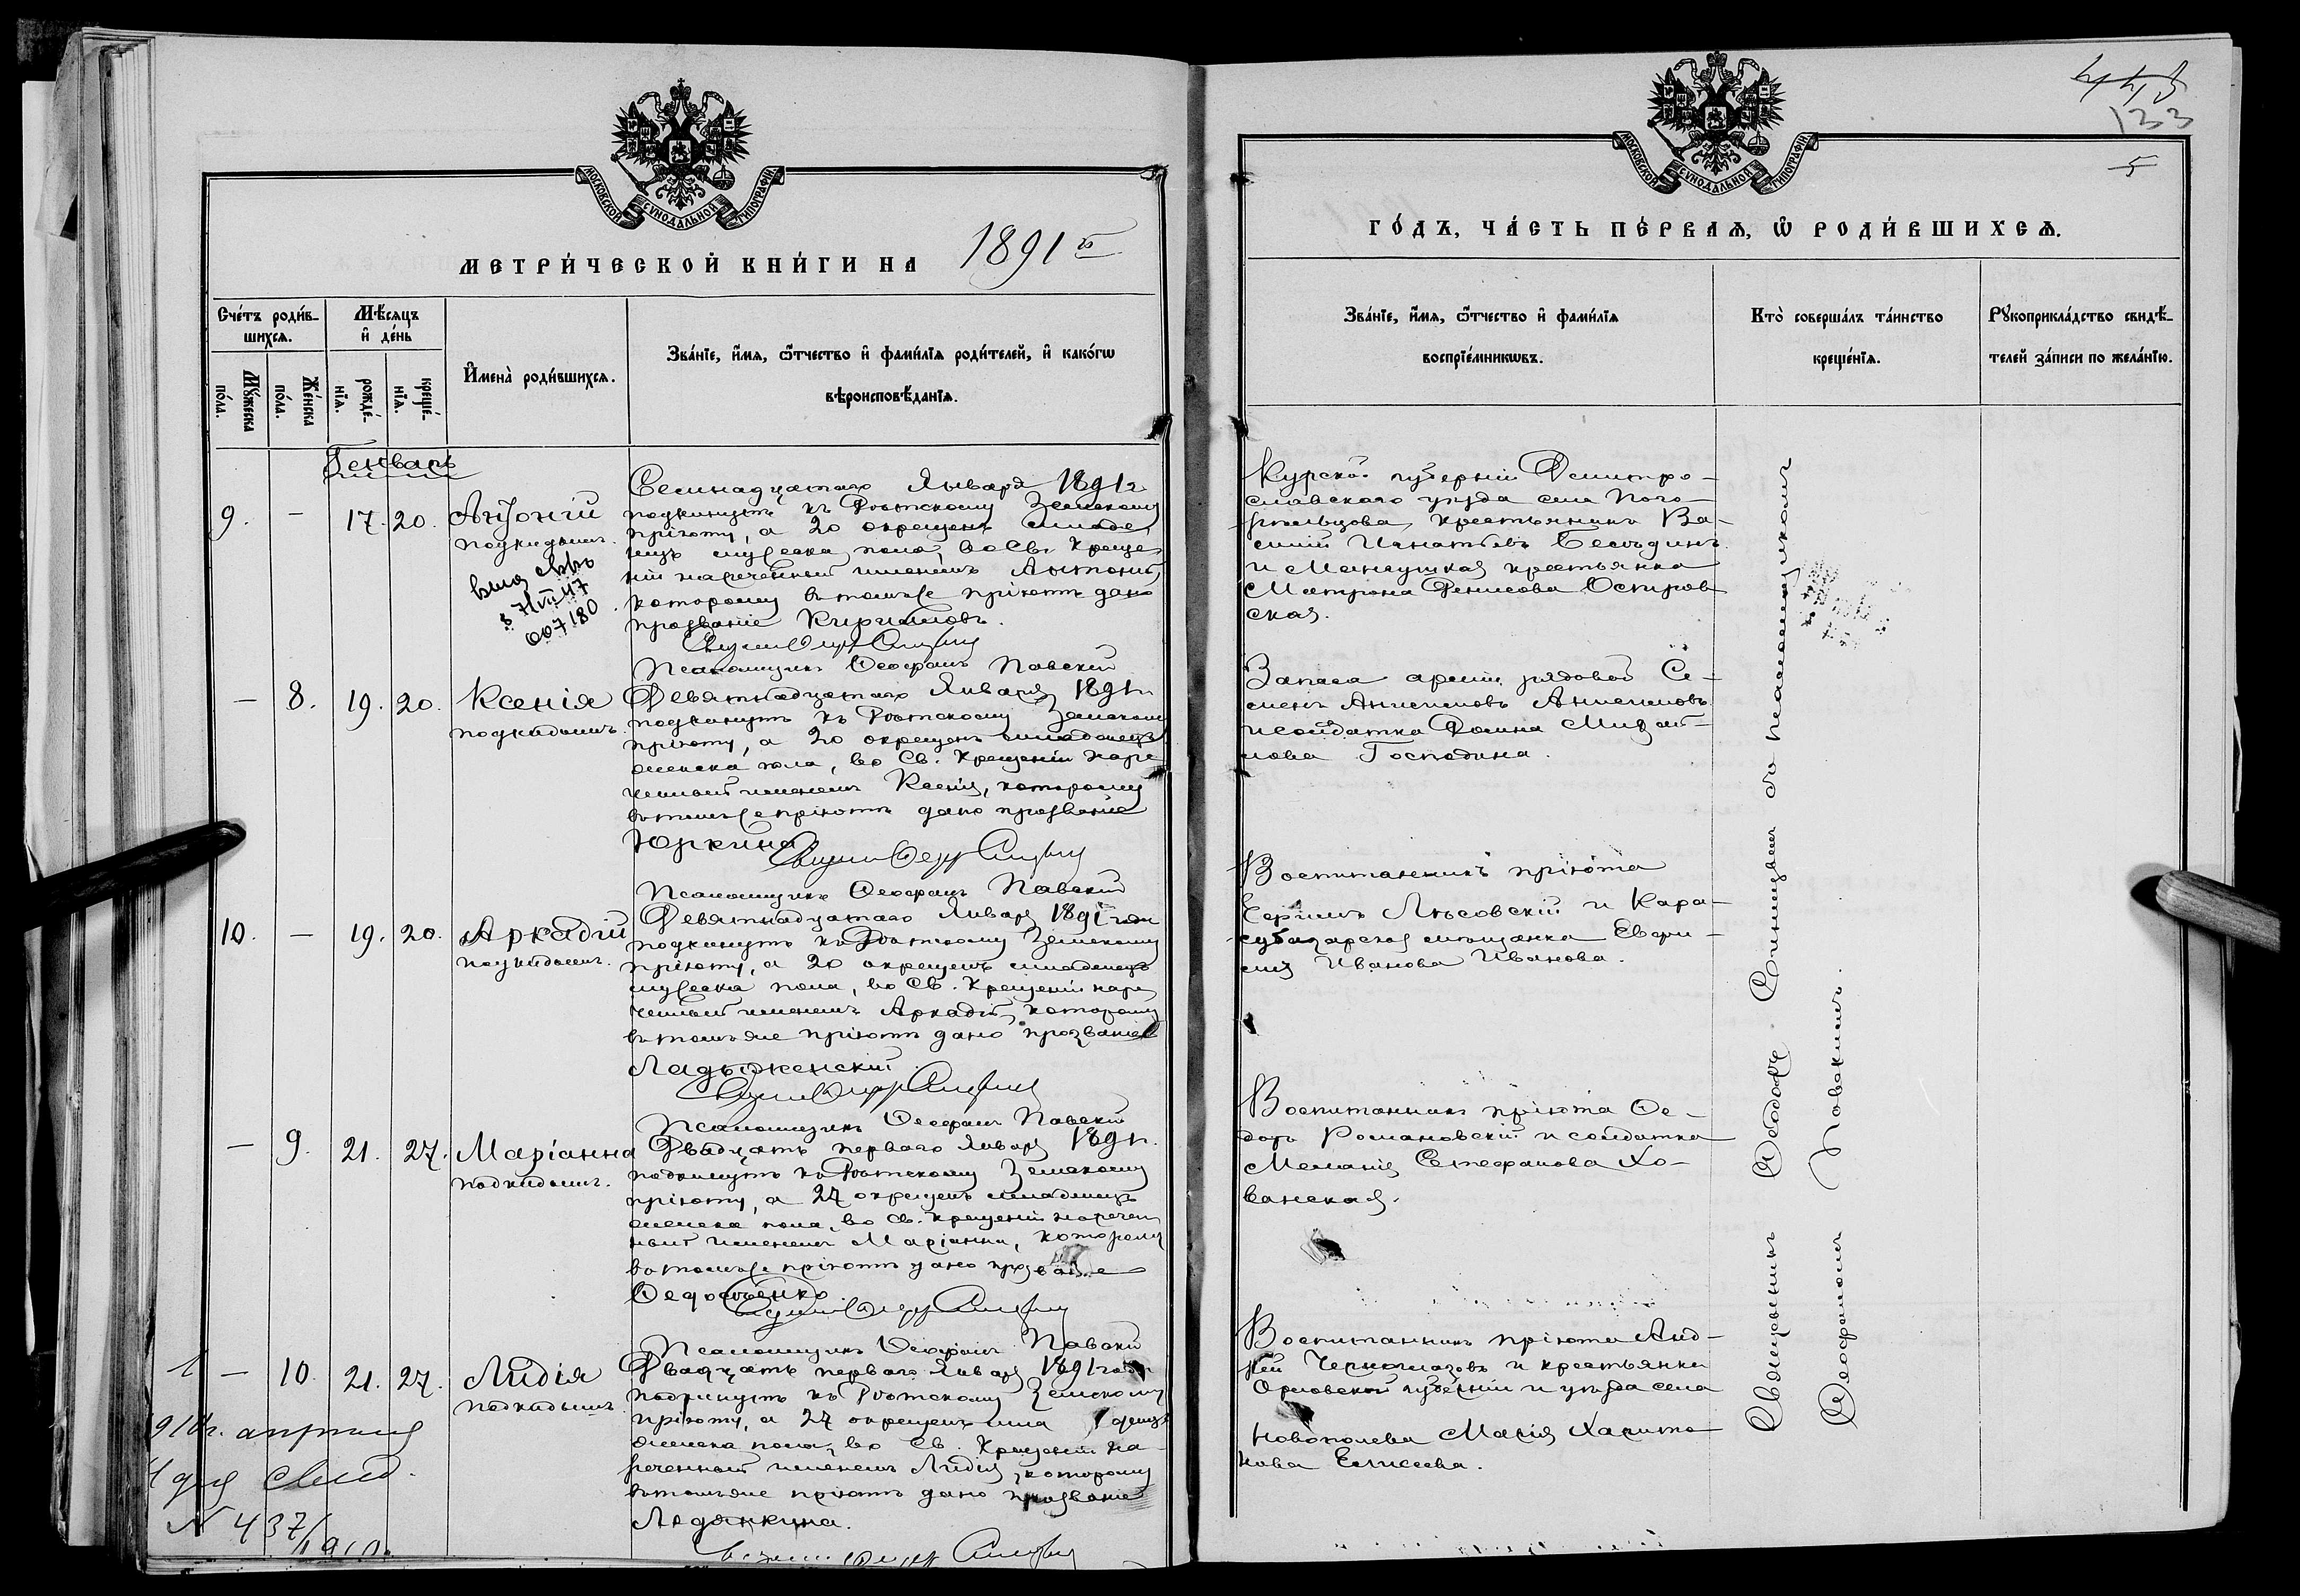 МОСКОВСКОЙ СѴНОДАЛЬНОЙ ТИПОГРАФІИ
МЕТРИ́ЧЕСКОЙ КНИ́ГИ НА 1891 й
Сче́тъ роди́в-
шихсѧ.
Мѣ́сяцъ
и҆ де́нь
Мꙋ́жеска
по́ла.
Же́нска
по́ла.
рожде́-
нїѧ.
креще́-
нїѧ.
И҆мена̀ роди́вшихсѧ.
Зва́нїе, и҆́мѧ, ѻ҆́тчество и҆ фами́лїѧ роди́телей, и҆ како́гѡ
вѣроисповѣ́данїѧ.
Генварь
9. - 17. 20. Антоній
подкидышъ
Семнадцатаго Января 1891 г.
подкинутъ къ Ротскому Земскому
пріюту, а 20 окрещенъ младе-
нецъ мужеска пола, во Св. Креще-
ніи нареченный именемъ Антоній,
которому въ томъ же пріютѣ дано
прозваніе Кирилловъ.
Псаломщикъ Ѳеофанъ Павскій
- 8. 19. 20. Ксенія
подкидышъ
Девятнадцатаго Января 1891 г.
подкинутъ къ Ротскому Земскому
пріюту, а 20 окрещенъ младенецъ
женска пола, во Св. Крещеніи наре
ченный именемъ Ксенія, которому
въ томъ же пріютѣ дано прозваніе
Юркина
Псаломщикъ Ѳеофанъ Павскій
10. - 19. 20. Аркадій
подкидышъ.
Девятнадцатаго Января 1891 года
подкинутъ къ Ротскому Земскому
пріюту, а 20 окрещенъ младенецъ
мужеска пола, во Св. Крещеніи наре
ченный именемъ Аркадій, которому
въ томъ же пріютѣ дано прозваніе
Ладыженскій
Псаломщикъ Ѳеофанъ Павскій
- 9. 21. 27. Маріанна
подкидышъ.
Двадцать перваго Января 1891 г.
подкинутъ къ Ротскому Земскому
пріюту, а 27 окрещенъ младенецъ
женска пола, во Св. Крещеніи наречен
ный именемъ Маріанна, которому
въ томъ же пріютѣ дано прозваніе
Псаломщикъ Ѳеофанъ Павскій
- 10. 21. 27. Лидія
подкидышъ
Двадцать перваго Января 1891 года
подкинутъ къ Ротскому Земскому
пріюту, а 27 окрещенъ мла денецъ
женска пола, во Св. Крещеніи на-
реченный именемъ Лидія, которому
въ томъ же пріютѣ дано прозваніе
Ледянкина.
N 437/1910.
133
5
МОСКОВСКОЙ СѴНОДАЛЬНОЙ ТИПОГРАФІИ
ГО́ДЪ, ЧА́СТЬ ПЕ́РВАѦ, Ѡ҆ РОДИ́ВШИХСѦ.
Зва́нїе, и҆́мѧ, ѻ҆́тчество и҆ фами́лїѧ
воспрїе́мникѡвъ.
Кто̀ соверша́лъ та́инство
креще́нїѧ.
Рꙋкоприкла́дство свидѣ́-
телей за́писи по жела́нїю.
Курской губерніи Дмитро-
славскаго уѣзда села Пого-
рѣльцова, крестьянинъ Ва-
силій Игнатьевъ
и крестьянка
Матрона Денисова Островс
ская.
Запаса арміи рядовой Се-
менъ Анисимовъ Анисимовъ
и солдатка Домна Михай-
лова Господина.
Воспитанникъ пріюта
Лѣсовскій и Кара-
субазарская мѣщанка Евфи-
мія Иванова Иванова.
Воспитанникъ пріюта Ѳе-
доръ Романовскій и солдатка
Меланія Стефанова Хо-
ванская.
Воспитанникъ пріюта Анд-
рей Черномазовъ и крестьянка
Орловской губерніи и уѣзда села
Новополева Марія Харито-
нова Елисеева.
Священникъ Ѳеодоръ Синицынъ съ псаломщикомъ
Ѳеофаномъ Павскимъ.